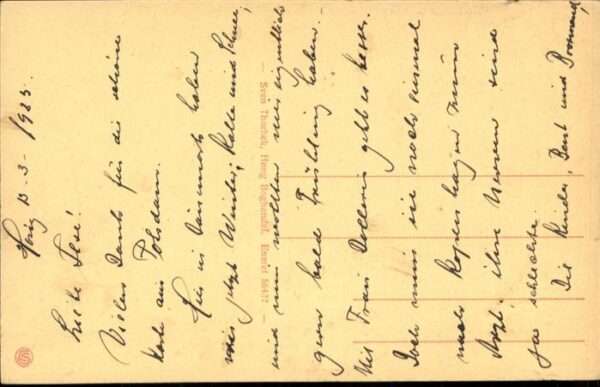 Høng 13-3-1923.
Liebe Fru!
Vielen Dank für die schöne
Karte aus Potsdam.
Hier in Dänemark haben
wir jetzt Winter, Kälte und Schnee,
und nun wollten wir eigentlich
gern bald Frühling haben. -
Mit Frau geht es besser.
Doch muss sie noch einmal
nach Kopenhagen zum
Arzt. ihre Nerven sind
ja schlechte.
Die Kinder, Bent und
- Sven Thorbek, Høng Boghandel. Eneret 56412 -